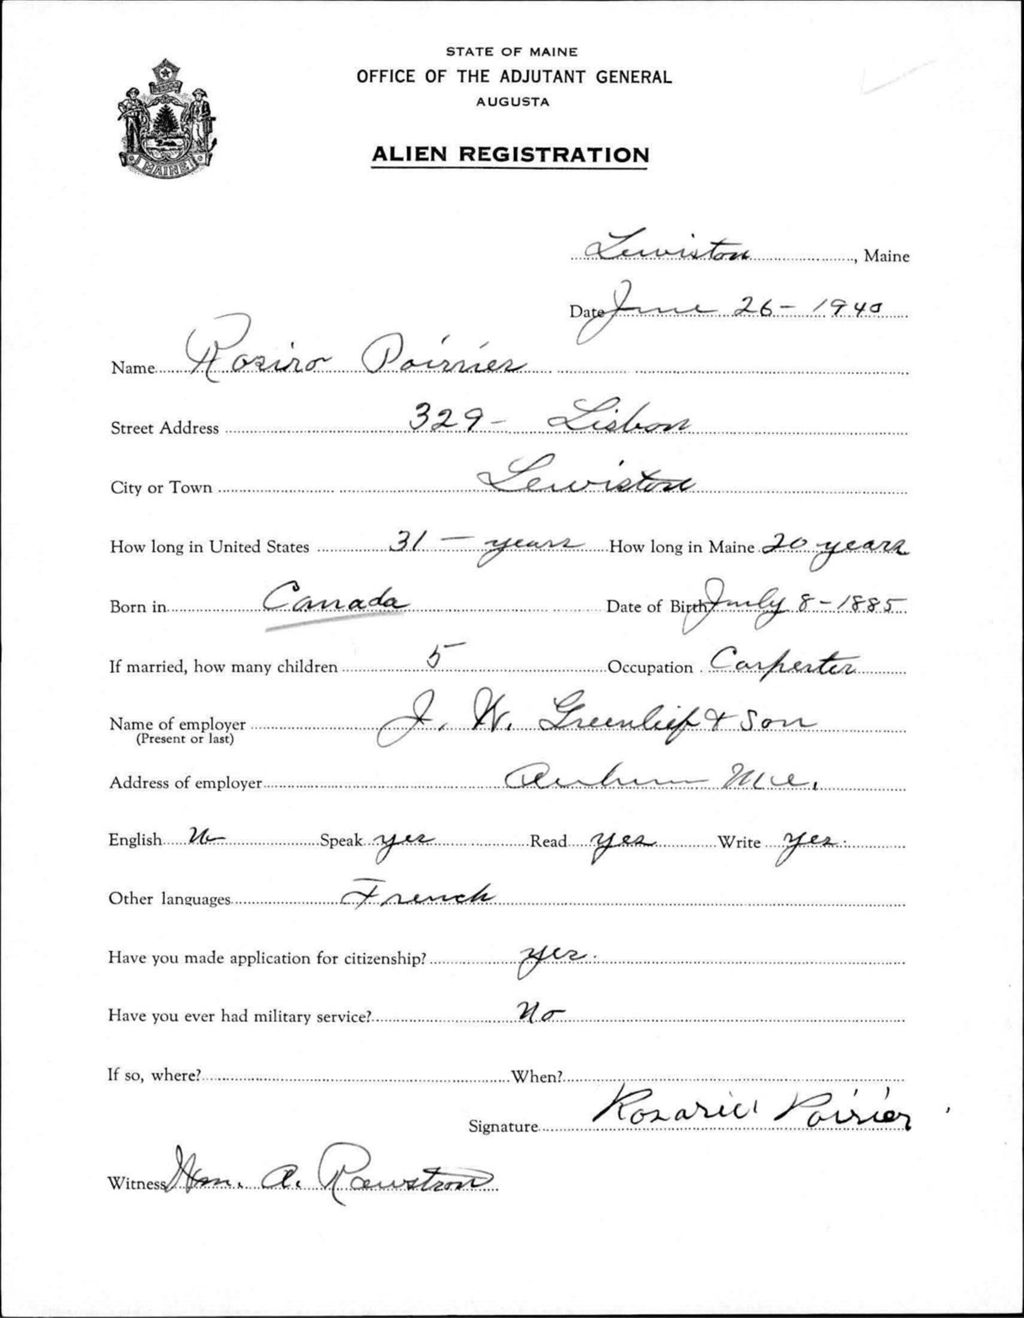 STATE OF MAINE
OFFICE OF THE ADJUTANT GENERAL
AUGUSTA
ALIEN REGISTRATION
MAINE
Lewiston, Maine
Date June 26 - 1940
Name Roziro Poirrier
Street Address 329 - Lisbon
City or Town Lewiston
How long in United States 31 - years How long in Maine 20 years
Born in Canada Date of Birth July 8 - 1885
If married, how many children 5 Occupation Carpenter
Name of employer J. W. Greenlief & Son
(Present or last)
Address of employer Auburn Me.
English Speak yes Read yes Write yes.
Other languages French
Have you made application for citizenship? yes.
Have you ever had military service? No
If so, where? When?
Signature Poirier
Witness Wm. A. Rawstron